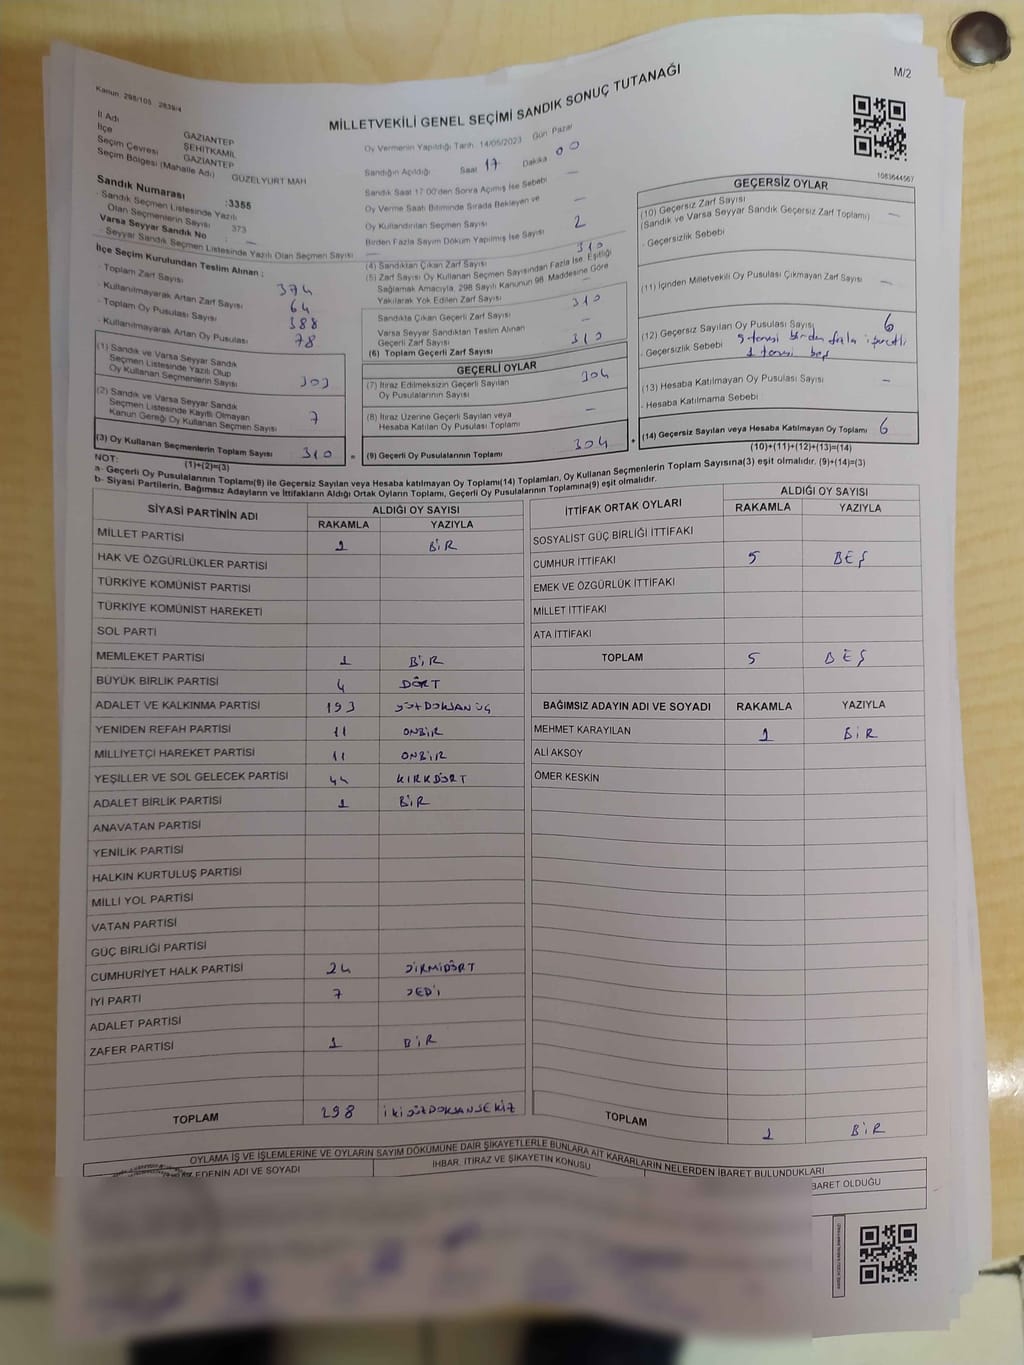 Kanun: 298/105 : 2839/4
M/2
MİLLETVEKİLİ GENEL SEÇİMİ SANDIK SONUÇ TUTANAĞI
İl Adı GAZİANTEP
İlçe ŞEHİTKAMİL
Seçim Çevresi GAZİANTEP
Seçim Bölgesi (Mahalle Adı) GÜZELYURT MAH
Sandık Numarası :3355
- Sandık Seçmen Listesinde Yazılı
Olan Seçmenlerin Sayısı 373
Varsa Seyyar Sandık No : —
- Seyyar Sandık Seçmen Listesinde Yazılı Olan Seçmen Sayısı —
İlçe Seçim Kurulundan Teslim Alınan ;
- Toplam Zarf Sayısı 374
- Kullanılmayarak Artan Zarf Sayısı 64
- Toplam Oy Pusulası Sayısı 388
- Kullanılmayarak Artan Oy Pusulası 78
(1) Sandık ve Varsa Seyyar Sandık
Seçmen Listesinde Yazılı Olup
Oy Kullanan Seçmenlerin Sayısı 303
(2) Sandık ve Varsa Seyyar Sandık
Seçmen Listesinde Kayıtlı Olmayan
Kanun Gereği Oy Kullanan Seçmen Sayısı 7
(3) Oy Kullanan Seçmenlerin Toplam Sayısı 310 =
(1)+(2)=(3)
Oy Vermenin Yapıldığı Tarih :14/05/2023 Gün Pazar
Sandığın Açıldığı Saat 17 Dakika 00
Sandık Saat 17:00'den Sonra Açılmış İse Sebebi —
Oy Verme Saati Bitiminde Sırada Bekleyen ve
Oy Kullandırılan Seçmen Sayısı —
Birden Fazla Sayım Döküm Yapılmış İse Sayısı 2
(4) Sandıktan Çıkan Zarf Sayısı 310
(5) Zarf Sayısı Oy Kullanan Seçmen Sayısından Fazla İse, Eşitliği
Sağlamak Amacıyla, 298 Sayılı Kanunun 98. Maddesine Göre
Yakılarak Yok Edilen Zarf Sayısı —
Sandıkta Çıkan Geçerli Zarf Sayısı 310
Varsa Seyyar Sandıktan Teslim Alınan
Geçerli Zarf Sayısı —
(6) Toplam Geçerli Zarf Sayısı 310
GEÇERLİ OYLAR
(7) İtiraz Edilmeksizin Geçerli Sayılan
Oy Pusulalarının Sayısı 304
(8) İtiraz Üzerine Geçerli Sayılan veya
Hesaba Katılan Oy Pusulası Toplamı —
(9) Geçerli Oy Pusulalarının Toplamı 304 +
1083644567
GEÇERSİZ OYLAR
(10) Geçersiz Zarf Sayısı —
(Sandık ve Varsa Seyyar Sandık Geçersiz Zarf Toplamı)
- Geçersizlik Sebebi
(11) İçinden Milletvekili Oy Pusulası Çıkmayan Zarf Sayısı —
(12) Geçersiz Sayılan Oy Pusulası Sayısı 6
- Geçersizlik Sebebi 5 tanesi birden fazla işaretli
1 tanesi boş
(13) Hesaba Katılmayan Oy Pusulası Sayısı —
- Hesaba Katılmama Sebebi
(14) Geçersiz Sayılan veya Hesaba Katılmayan Oy Toplamı 6
(10)+(11)+(12)+(13)=(14)
NOT:
a- Geçerli Oy Pusulalarının Toplamı(9) ile Geçersiz Sayılan veya Hesaba katılmayan Oy Toplamı(14) Toplamları, Oy Kullanan Seçmenlerin Toplam Sayısına(3) eşit olmalıdır. (9)+(14)=(3)
b- Siyasi Partilerin, Bağımsız Adayların ve İttifakların Aldığı Ortak Oyların Toplamı, Geçerli Oy Pusulalarının Toplamına(9) eşit olmalıdır.
SİYASİ PARTİNİN ADI ALDIĞI OY SAYISI
RAKAMLA YAZIYLA
MİLLET PARTİSİ 1 BİR
HAK VE ÖZGÜRLÜKLER PARTİSİ
TÜRKİYE KOMÜNİST PARTİSİ
TÜRKİYE KOMÜNİST HAREKETİ
SOL PARTİ
MEMLEKET PARTİSİ 1 BİR
BÜYÜK BİRLİK PARTİSİ 4 DÖRT
ADALET VE KALKINMA PARTİSİ 193 YÜZDOKSANÜÇ
YENİDEN REFAH PARTİSİ 11 ONBİR
MİLLİYETÇİ HAREKET PARTİSİ 11 ONBİR
YEŞİLLER VE SOL GELECEK PARTİSİ 44 KIRKDÖRT
ADALET BİRLİK PARTİSİ 1 BİR
ANAVATAN PARTİSİ
YENİLİK PARTİSİ
HALKIN KURTULUŞ PARTİSİ
MİLLİ YOL PARTİSİ
VATAN PARTİSİ
GÜÇ BİRLİĞİ PARTİSİ
CUMHURİYET HALK PARTİSİ 24 YİRMİDÖRT
İYİ PARTİ 7 YEDİ
ADALET PARTİSİ
ZAFER PARTİSİ 1 BİR
TOPLAM 298 İKİYÜZDOKSANSEKİZ
İTTİFAK ORTAK OYLARI ALDIĞI OY SAYISI
RAKAMLA YAZIYLA
SOSYALİST GÜÇ BİRLİĞİ İTTİFAKI
CUMHUR İTTİFAKI 5 BEŞ
EMEK VE ÖZGÜRLÜK İTTİFAKI
MİLLET İTTİFAKI
ATA İTTİFAKI
TOPLAM 5 BEŞ
BAĞIMSIZ ADAYIN ADI VE SOYADI RAKAMLA YAZIYLA
MEHMET KARAYILAN 1 BİR
ALİ AKSOY
ÖMER KESKİN
TOPLAM 1 BİR
OYLAMA İŞ VE İŞLEMLERİNE VE OYLARIN SAYIM DÖKÜMÜNE DAİR ŞİKAYETLERLE BUNLARA AİT KARARLARIN NELERDEN İBARET BULUNDUKLARI
EDENİN ADI VE SOYADI İHBAR, İTİRAZ VE ŞİKAYETİN KONUSU BARET OLDUĞU